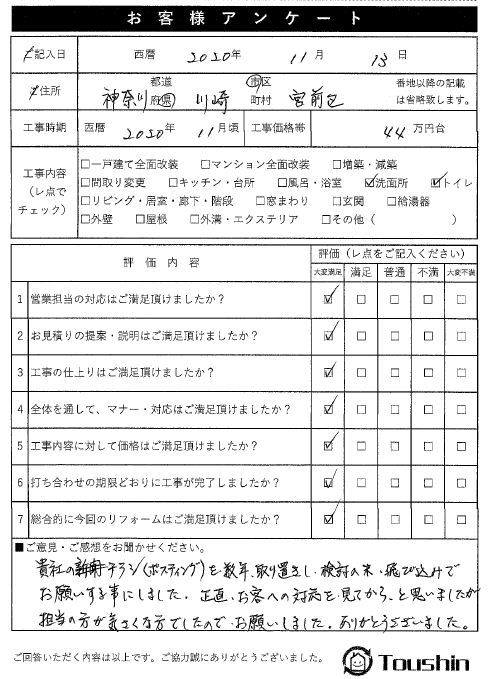 お客様アンケート
記入日 西暦 2020年 11月 13日
住所 神奈川 都道府県 川崎 市区町村 宮前区 番地以降の記載は省略致します。
工事時期 西暦 2020年 11月頃 工事価格帯 44万円台
工事内容(レ点でチェック)
□一戸建て全面改装 □マンション全面改装 □増築・減築
□間取り変更 □キッチン・台所 □風呂・浴室 ☑洗面所 ☑トイレ
□リビング・居室・廊下・階段 □窓まわり □玄関 □給湯器
□外壁 □屋根 □外溝・エクステリア □その他( )
評価内容 評価(レ点をご記入ください)
大変満足 満足 普通 不満 大変不満
1 営業担当の対応はご満足頂けましたか? ☑ □ □ □ □
2 お見積りの提案・説明はご満足頂けましたか? ☑ □ □ □ □
3 工事の仕上りはご満足頂けましたか? ☑ □ □ □ □
4 全体を通して、マナー・対応はご満足頂けましたか? ☑ □ □ □ □
5 工事内容に対して価格はご満足頂けましたか? ☑ □ □ □ □
6 打ち合わせの期限どおりに工事が完了しましたか? ☑ □ □ □ □
7 総合的に今回のリフォームはご満足頂けましたか? ☑ □ □ □ □
■ご意見・ご感想をお聞かせください。
貴社のチラシ(ポスティング)を数年、取り置きし、検討の末、飛び込みで
お願いする事にしました。正直、お客への対応を見てから、と思いましたが
担当の方が気さくな方でしたので、お願いしました。ありがとうございました。
ご回答いただく内容は以上です。ご協力誠にありがとうございました。
Toushin